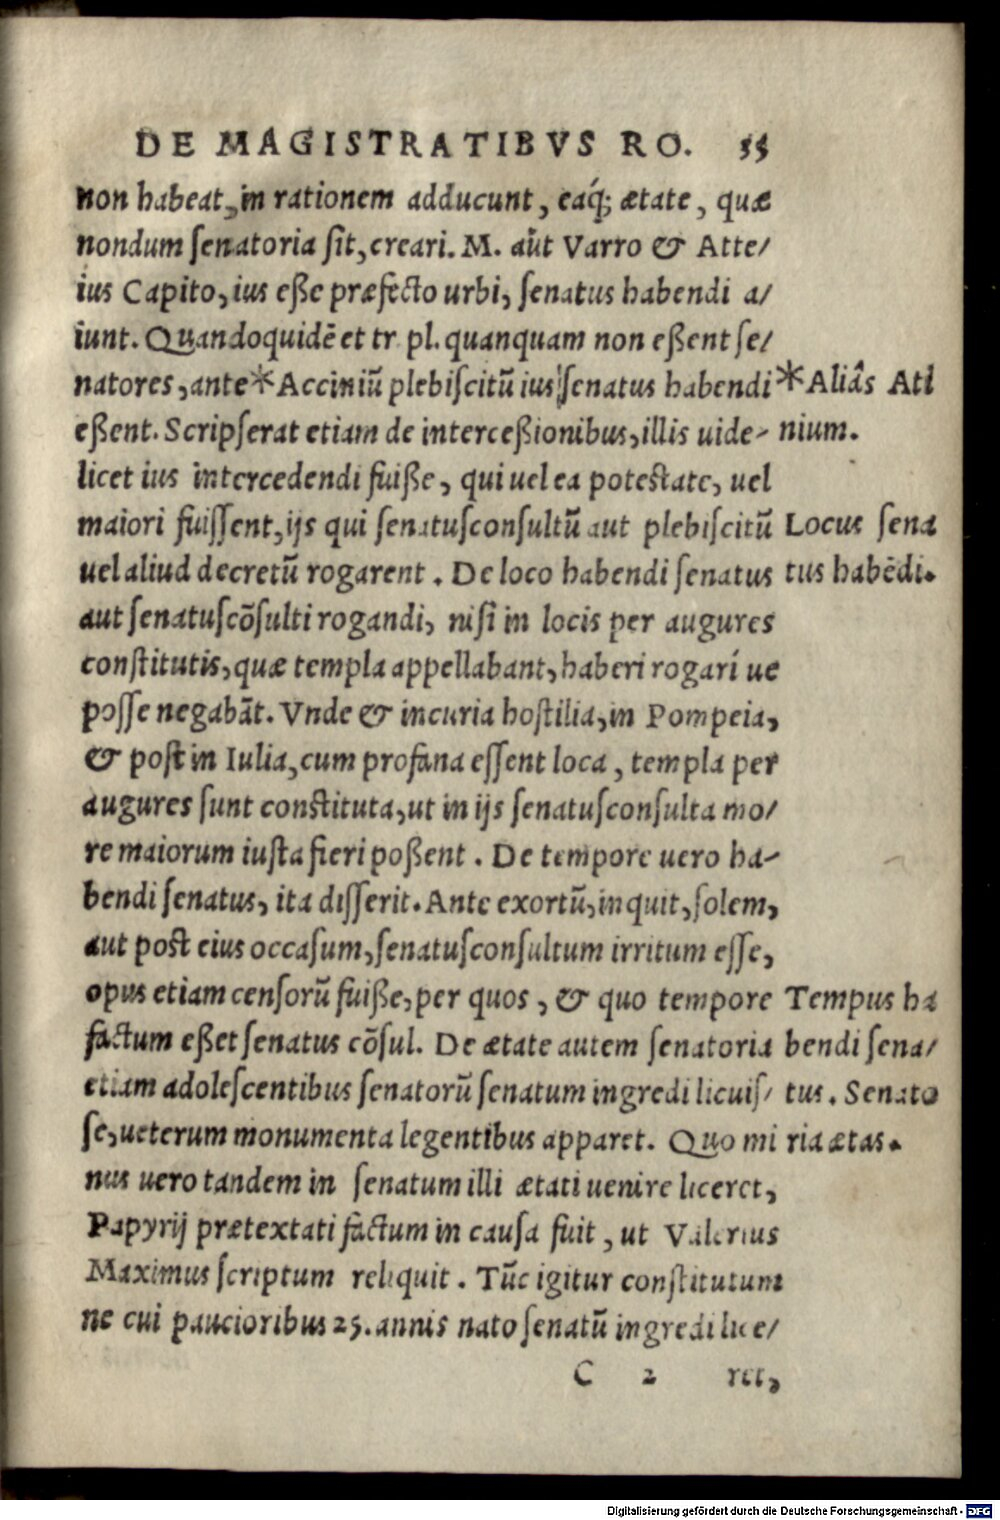 DE MAGISTRATIBVS RO. 35
non habeat, in rationem adducunt, eaq́; ætate, quæ
nondum ſenatoria ſit, creari. M. aũt Varro & Atte/
ius Capito, ius eße præfecto urbi, ſenatus habendi a/
iunt. Quandoquidẽ et tr. pl. quanquam non eßent ſe/
natores, ante * Acciniũ plebiſcitũ ius ſenatus habendi
* Aliâs Ati
eßent. Scripſerat etiam de interceßionibus, illis uide-
nium.
licet ius intercedendi fuiße, qui uel ea poteſtate, uel
maiori fuiſſent, ijs qui ſenatuſconſultũ aut plebiſcitũ
Locus ſena
uel aliud decretũ rogarent. De loco habendi ſenatus
tus habẽdi.
aut ſenatuſcõſulti rogandi, niſi in locis per augures
conſtitutis, quæ templa appellabant, haberi rogarí ue
poſſe negabãt. Vnde & in curia hoſtilia, in Pompeia,
& poſt in Iulia, cum profana eſſent loca, templa per
augures ſunt conſtituta, ut in ijs ſenatuſconſulta mo/
re maiorum iuſta fieri poßent. De tempore uero ha-
bendi ſenatus, ita diſſerit. Ante exortũ, inquit, ſolem,
aut poſt eius occaſum, ſenatuſconſultum irritum eſſe,
opus etiam cenſorũ fuiße, per quos, & quo tempore
Tempus ha
factum eßet ſenatus cõſul. De ætate autem ſenatoria
bendi ſena/
etiam adoleſcentibus ſenatorũ ſenatum ingredi licuiſ/
tus. Senato
ſe, ueterum monumenta legentibus apparet. Quo mi
ria ætas.
nus uero tandem in ſenatum illi ætati uenire liceret,
Papyrij prætextati factum in cauſa fuit, ut Valerius
Maximus ſcriptum reliquit. Tũc igitur conſtitutum
ne cui paucioribus 25. annis nato ſenatũ ingredi lice/
C 2 ret,
Digitalisierung gefördert durch die Deutsche Forschungsgemeinschaft - DFG